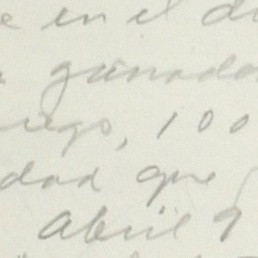 e en el d
ganado
ugo, 100
dad que
Abril 9